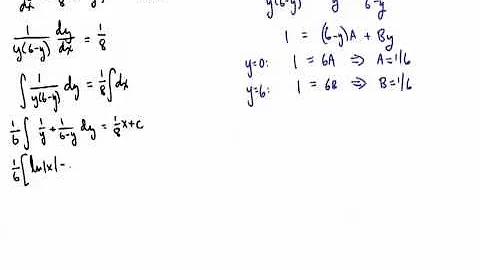 1/(y(6-y)) dy/dx = 1/8
∫ 1/(y(6-y)) dy = 1/8 ∫ dx
1/6 ∫ 1/y + 1/(6-y) dy = 1/8 x + c
1/6 [ ln|x| -
y(6-y) y 6-y
1 = (6-y)A + By
y=0: 1 = 6A ⇒ A=1/6
y=6: 1 = 6B ⇒ B=1/6